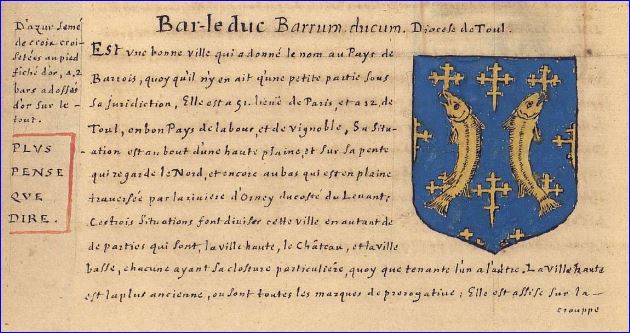 Bar-le duc Barrum ducum. Diocese de Toul.
D'azur semé
de croix croi-
setées au pied
fiché d'or, a 2
bars adossés
d'or sur le-
tout.
PLVS
PENSE
QVE
DIRE.
Est vne bonne ville qui a donné le nom au Pays de
Barrois, quoy qu'il n'y en ait qu'une petite partie sous
sa juridiction, Elle est a 51. lieuë de Paris, et a 12. de
Toul, en bon Pays de labour, et de vignoble, Sa Situ-
ation est au bout d'une haute plaine, et sur sa pente
qui regarde le Nord, et encore au bas qui est en plaine
traversée par la riviere d'Orney du costé du Leuant,
Ces trois Situations font diviser cette ville en autant de
de parties qui sont, la ville haute, le Château, et la ville
basse, chacune ayant sa closture particuliere, quoy que tenante l'un a l'autre. La ville haute
est la plus ancienne, ou sont toutes les marques de prerogative; Elle est assise sur la-
crouppe